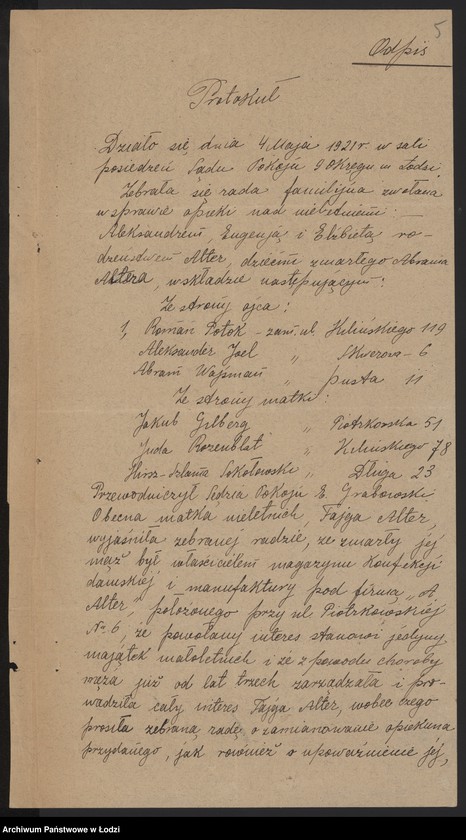 5
Odpis
Protokuł
Działo się dnia 4 Maja 1921 r w sali
posiedzeń Sądu Pokoju 9 Okręgu m. Łodzi.
Zebrała się rada familijna zwołana
w sprawie opieki nad nieletniemi:
Aleksandrem, Eugenją i Elżbietą ro-
dzeństwem Alter, dziećmi zmarłego Abrama
Altera, w składzie następującym:
Ze strony ojca:
1, Roman Potok - zam. ul. Kilińskiego 119
Aleksander Joel „ Skwerowa - 6
Abram Wajsman „ pusta 11
Ze strony matki:
Jakub Gelberg „ Piotrkowska 51
Juda Rozenblat „ Kilińskiego 78
Hirsz-Szlama Sokołowski „ Długa 23
Przewodniczył Sędzia Pokoju E. Grabowski
Obecna matka nieletnich, Fajga Alter,
wyjaśniła zebranej radzie, że zmarły jej
mąż był właścicielem magazynu Konfekcji
damskiej i manufaktury pod firmą „A
Alter" położonego przy ul Piotrkowskiej
№ 6, że powołany interes stanowi jedyny
majątek małoletnich i że z powodu choroby
męża już od lat trzech zarządzała i pro-
wadziła cały interes Fajga Alter, wobec czego
prosiła zebraną radę o zamianowanie opiekuna
przydanego, jak również o upoważnienie jej,
Archiwum Państwowe w Łodzi